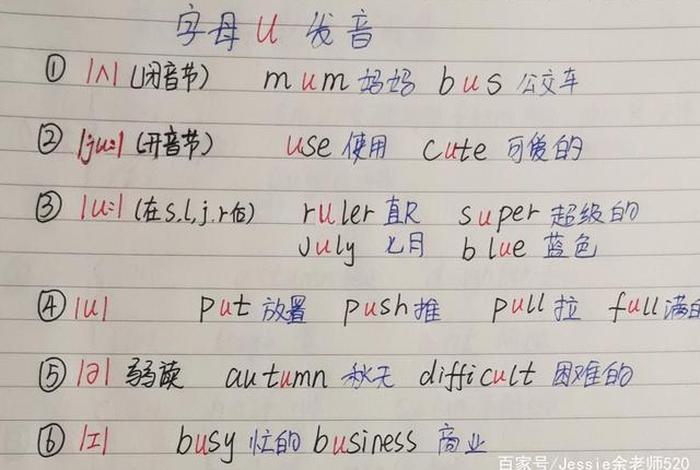 字母 u 发音
① /ʌ/ (闭音节) mum 妈妈 bus 公交车
② /ju:/ (开音节) use 使用 cute 可爱的
③ /u:/ (在s,l,j,r后) ruler 直尺 super 超级的
July 七月 blue 蓝色
④ /u/ put 放置 push 推 pull 拉 full 满的
⑤ /ə/ 弱读 autumn 秋天 difficult 困难的
⑥ /ɪ/ busy 忙的 business 商业
百家号/Jessie余老师520